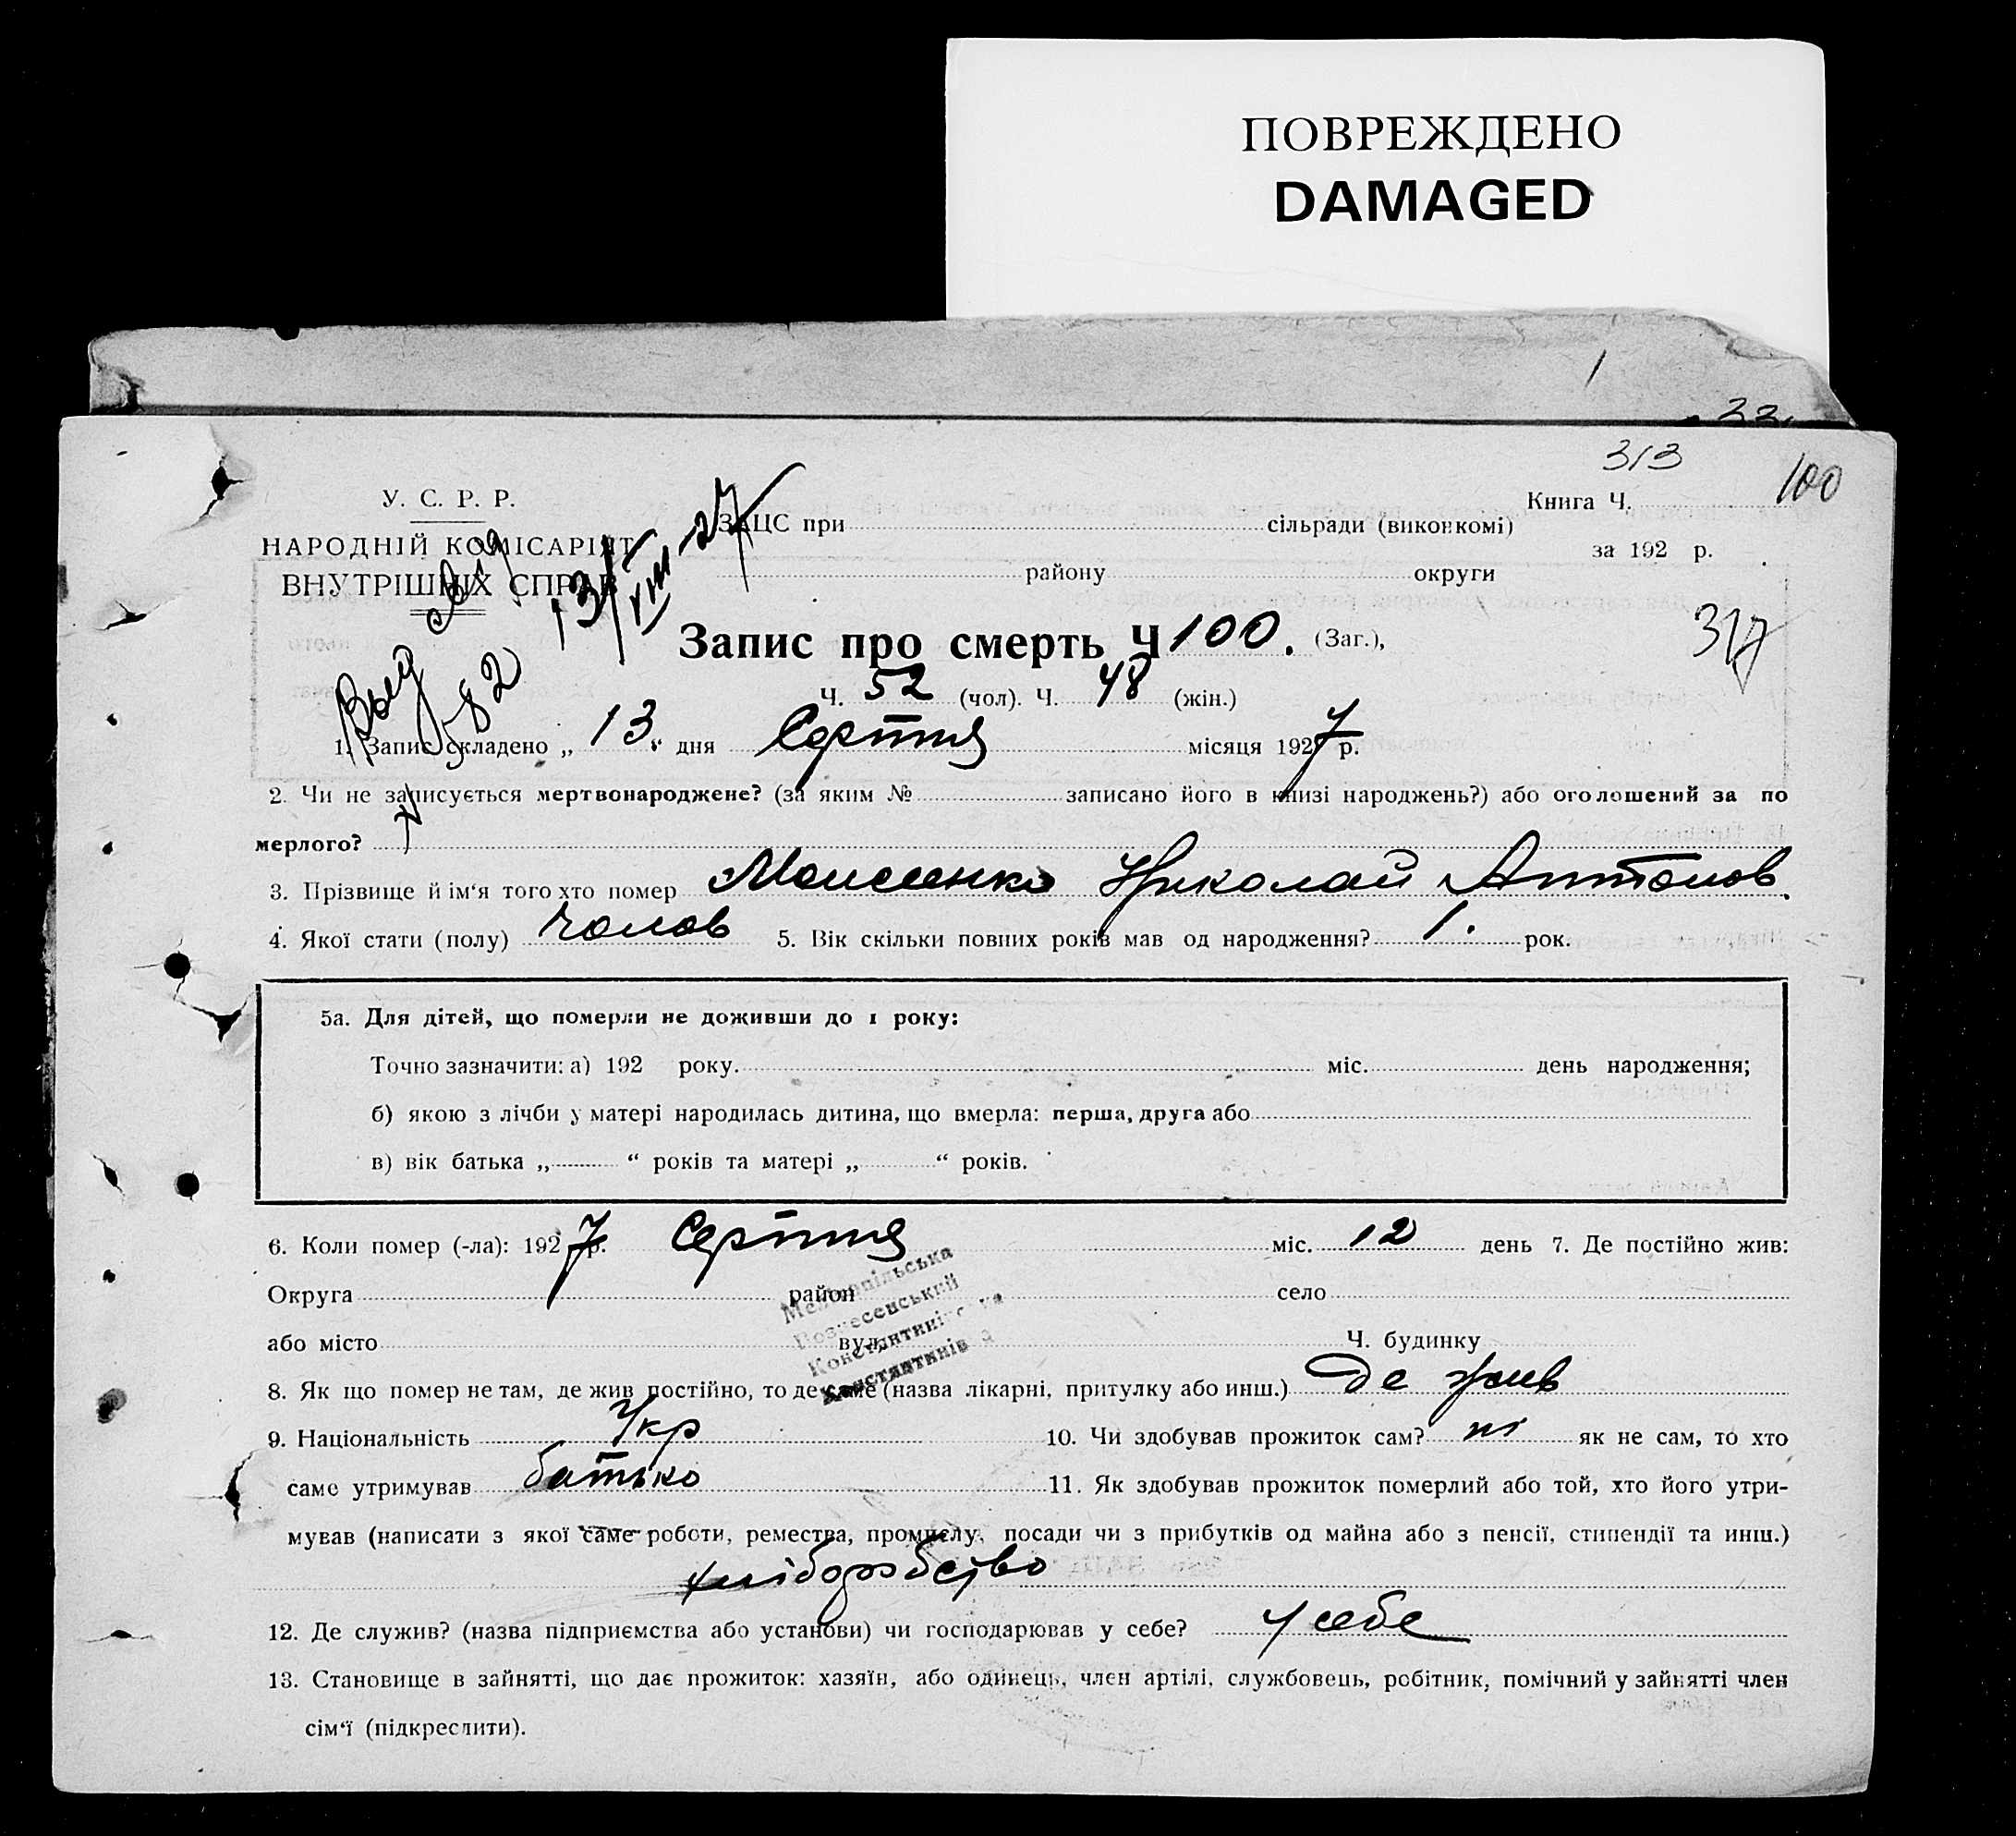 ПОВРЕЖДЕНО
DAMAGED
1
22
313
100
У. С. Р. Р.
НАРОДНІЙ КОМІСАРІЯТ
ВНУТРІШНІХ СПРАВ
ЗАЦС при сільради (виконкомі)
Книга Ч.
за 192 р.
району округи
13/VIII-27
582
317
Запис про смерть Ч 100. (Заг.),
Ч. 52 (чол). Ч. 48 (жін.)
1. Запис складено „ 13 “ дня Серпня місяця 1927 р.
2. Чи не записується мертвонароджене? (за яким № записано його в книзі народжень?) або оголошений за по
мерлого?
3. Прізвище й ім‘я того хто помер Моисеенко Николай Антонов
4. Якої стати (полу) чолов 5. Вік скільки повних років мав од народження? 1. рок.
5а. Для дітей, що померли не доживши до 1 року:
Точно зазначити: а) 192 року. міс. день народження;
б) якою з лічби у матері народилась дитина, що вмерла: перша, друга або
в) вік батька „ “ років та матері „ “ років.
6. Коли помер (-ла): 1927 р. Серпня міс. 12 день 7. Де постійно жив:
Округа район село
або місто вул. Ч. будинку
Мелітопільська
Вознесенський
8. Як що помер не там, де жив постійно, то де саме (назва лікарні, притулку або инш.) Де жив
9. Національність Укр 10. Чи здобував прожиток сам? ні як не сам, то хто
саме утримував батько 11. Як здобував прожиток померлий або той, хто його утри-
мував (написати з якої саме роботи, ремества, промислу, посади чи з прибутків од майна або з пенсії, стипендії та инш.)
хліборобство
12. Де служив? (назва підприємства або установи) чи господарював у себе? у себе
13. Становище в зайнятті, що дає прожиток: хазяїн, або одинець, член артілі, службовець, робітник, помічний у зайнятті член
сім‘ї (підкреслити).